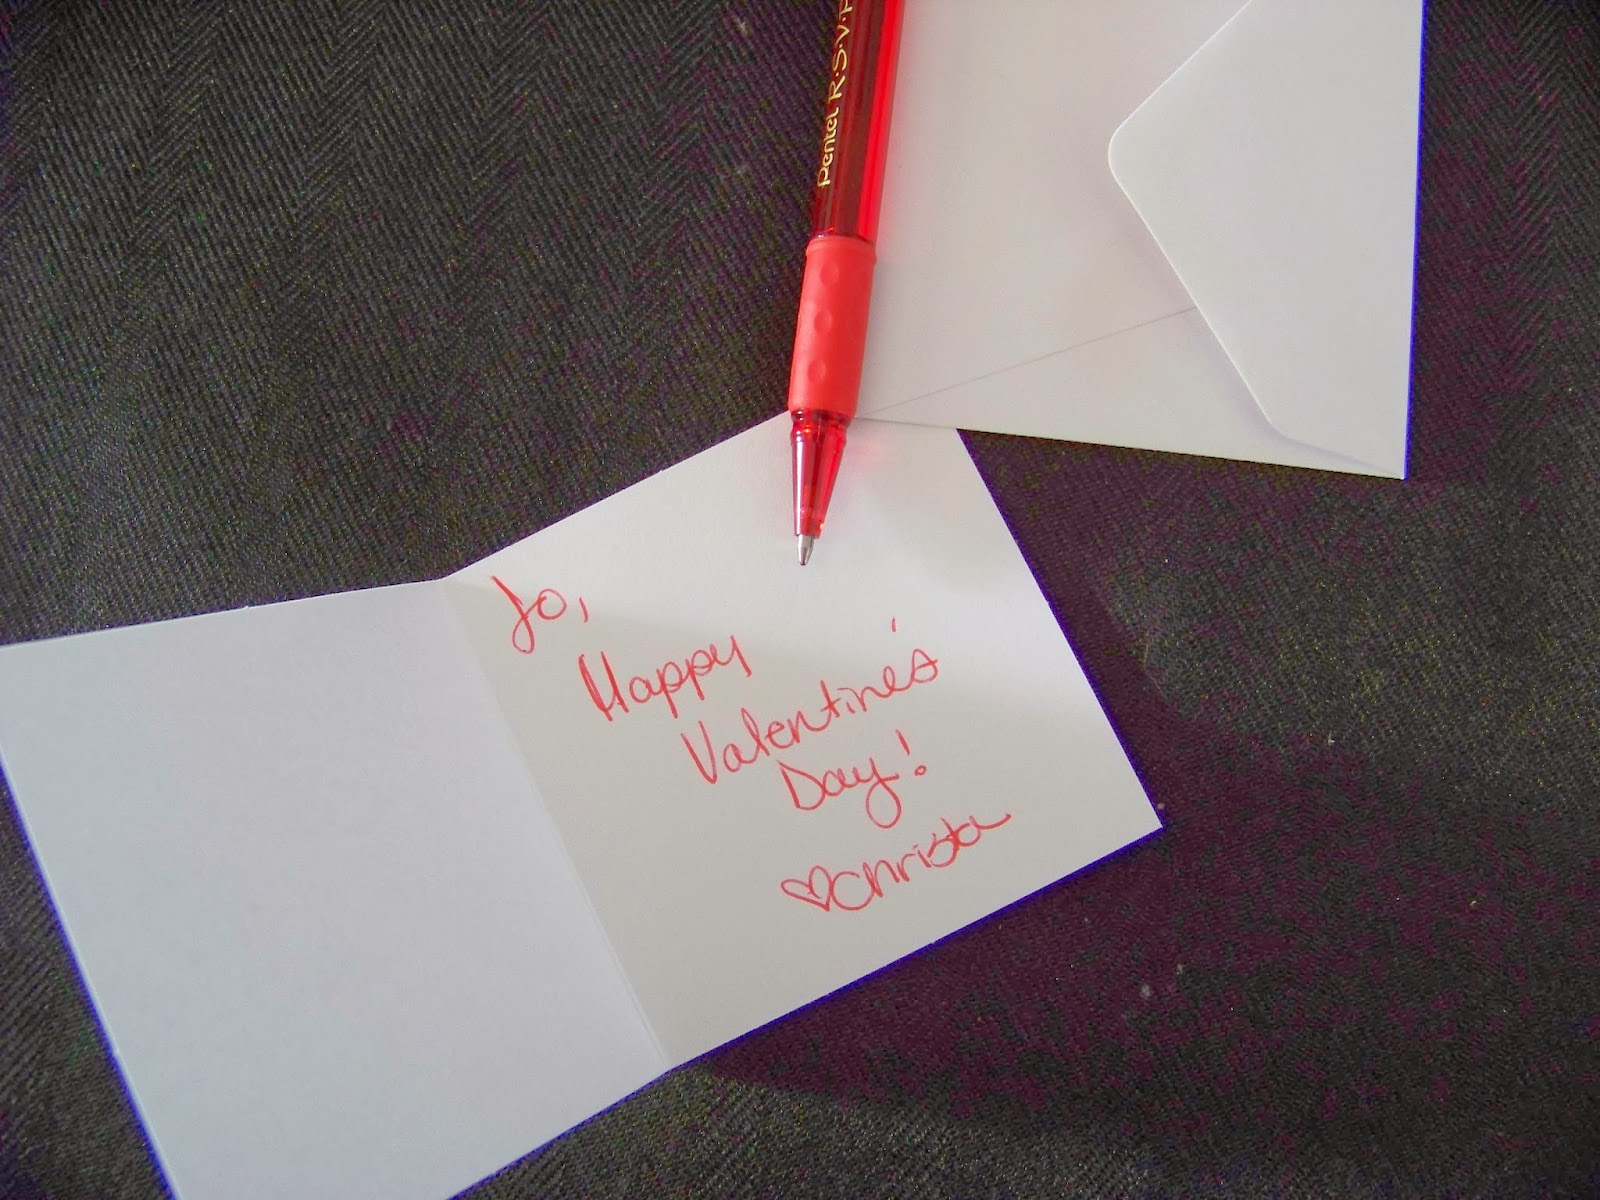 Pentel R.S.V.P.
Jo,
Happy
Valentine's
Day!
♡Christa